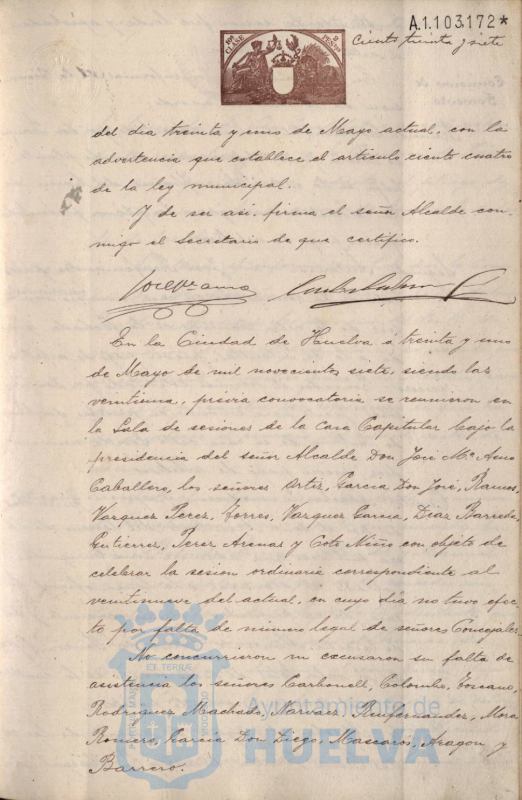 A.1.103.172*
Ciento treinta y siete
9ª CLASE
PESETAS
del dia treinta y uno de Mayo actual, con la
advertencia que establece el articulo ciento cuatro
de la ley municipal.
Y de ser asi, firma el señor Alcalde con-
migo el Secretario de que certifico.
En la Ciudad de Huelva á treinta y uno
de Mayo de mil novecientos siete, siendo las
veintiuna, prévia convocatoria se reunieron en
la Sala de sesiones de la Casa Capitular bajo la
presidencia del señor Alcalde Don José Mª Amo
Caballero, los señores Ortiz, Garcia Don José, Ramos,
Vazquez Perez, Torres, Vazquez Garcia, Diaz Barreda,
Gutierrez, Perez Arenas y Coto Niño con objeto de
celebrar la sesion ordinaria correspondiente al
veintinueve del actual, en cuyo dia no tuvo efec-
to por falta de número legal de señores Concejales.
No concurrieron ni excusaron su falta de
asistencia los señores Carbonell, Colombo, Toscano,
Rodriguez Machado, Narvaez, Ruifernandez, Mora
Romero, Garcia Don Diego, Mascaros, Aragon y
Barrero.
PORTUS MARIS
ET TERRÆ
CUSTODIA
Ayuntamiento de
HUELVA